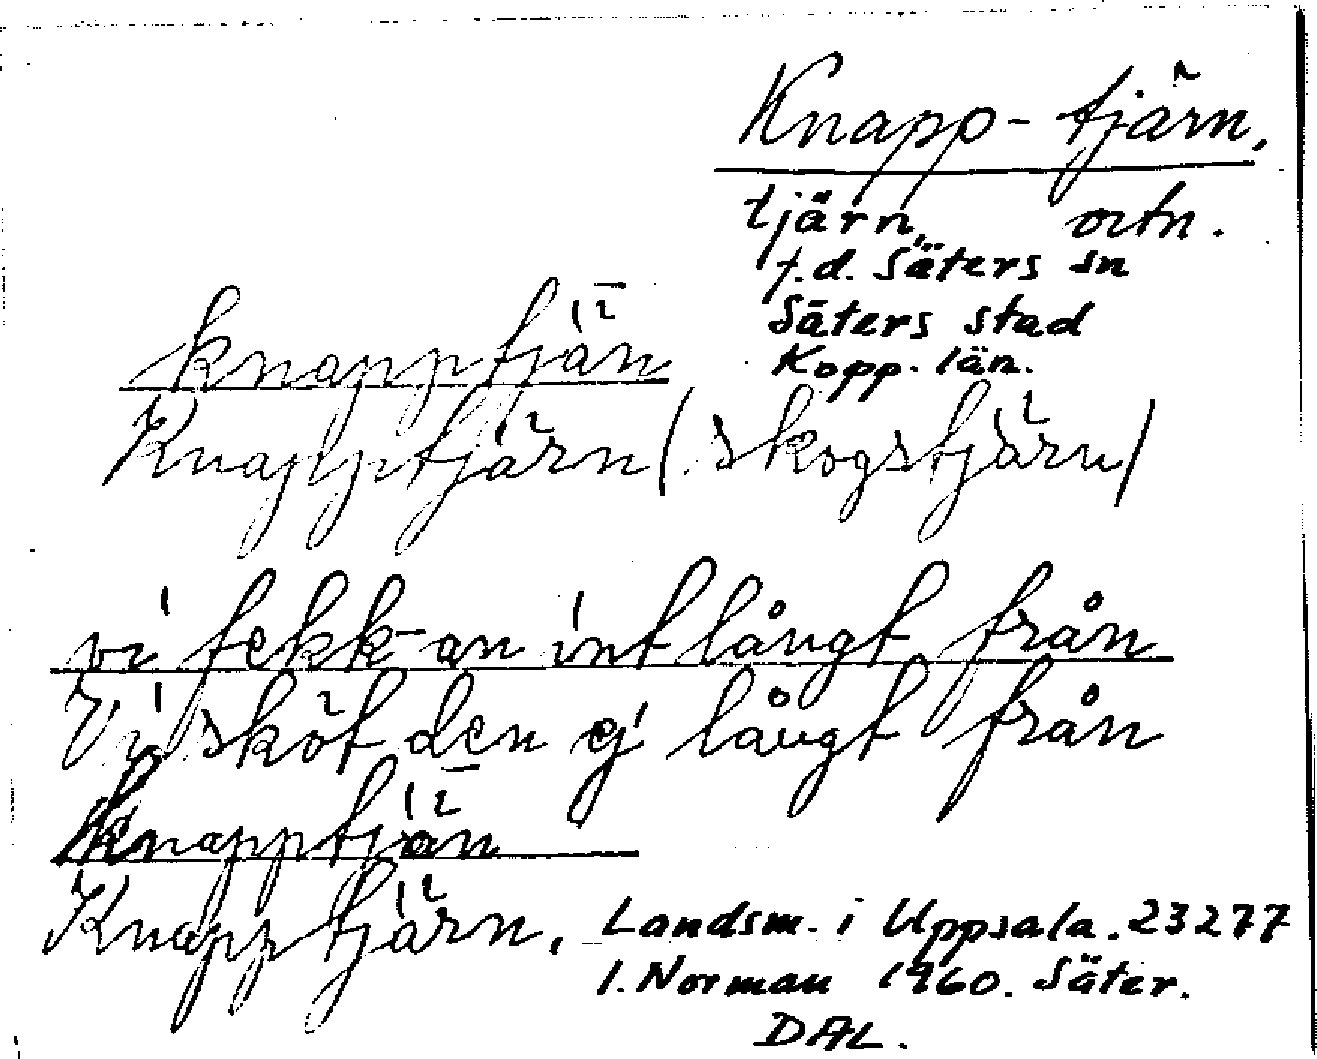 Knapp-tjärn,
tjärn, ortn.
f.d. Säters sn
Säters stad
Kopp. län.
knapptjän
Knapptjärn (skogstjärn)
vi fekk-an int långt från
Vi sköt den ej långt från
knapptjän
Knapptjärn.
Landsm. i Uppsala. 23277
I. Norman 1960. Säter.
DAL.